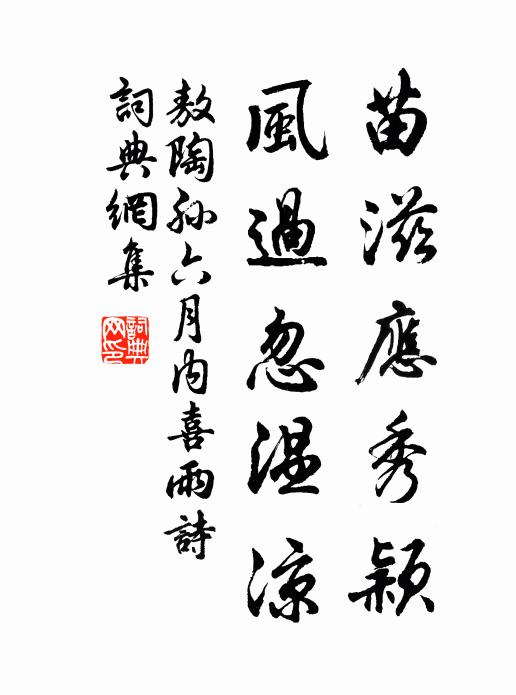 苗滋應秀穎
風過忽温涼
敖陶孫六月内喜雨詩
詞典網集
詞典
网印